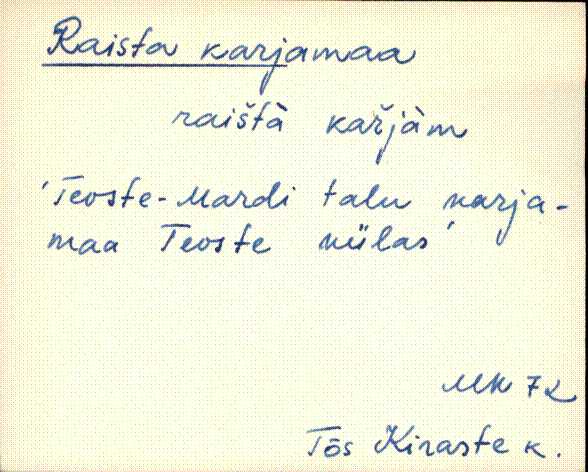 Raista karjamaa
raištà karjàm
'Teoste-Mardi talu karja-
maa Teoste külas'
MK 72
Tõs Kiraste k.